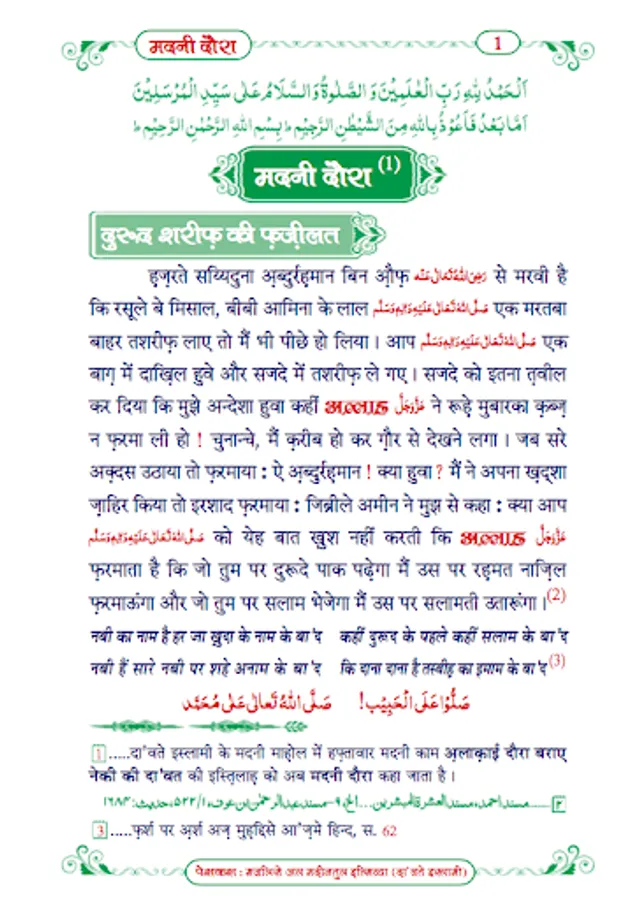 मदनी दौरा
1
اَلْحَمْدُ لِلّٰهِ رَبِّ الْعٰلَمِيْنَ وَ الصَّلٰوةُ وَ السَّلَامُ عَلٰى سَيِّدِ الْمُرْسَلِيْنَ
اَمَّا بَعْدُ فَاَعُوْذُ بِاللّٰهِ مِنَ الشَّيْطٰنِ الرَّجِيْمِ ؕ بِسْمِ اللّٰهِ الرَّحْمٰنِ الرَّحِيْمِ ؕ
मदनी दौरा (1)
दुरूद शरीफ़ की फ़ज़ीलत
हज़रते सय्यिदुना अ़ब्दुर्रह़मान बिन औ़फ़ رَضِىَ اللّٰهُ تَعَالٰى عَنْه से मरवी है
कि रसूले बे मिसाल, बीबी आमिना के लाल صَلَّى اللّٰهُ تَعَالٰى عَلَيْهِ وَاٰلِهٖ وَسَلَّم एक मरतबा
बाहर तशरीफ़ लाए तो मैं भी पीछे हो लिया । आप صَلَّى اللّٰهُ تَعَالٰى عَلَيْهِ وَاٰلِهٖ وَسَلَّم एक
बाग़ में दाख़िल हुवे और सजदे में तशरीफ़ ले गए । सजदे को इतना त़वील
कर दिया कि मुझे अन्देशा हुवा कहीं عَزَّوَجَلَّ ने रूहे़ मुबारका क़ब्ज़
न फ़रमा ली हो ! चुनान्चे, मैं क़रीब हो कर ग़ौर से देखने लगा । जब सरे
अक़्दस उठाया तो फ़रमाया : ऐ अ़ब्दुर्रह़मान ! क्या हुवा ? मैं ने अपना ख़द्शा
ज़ाहिर किया तो इरशाद फ़रमाया : जिब्रीले अमीन ने मुझ से कहा : क्या आप
صَلَّى اللّٰهُ تَعَالٰى عَلَيْهِ وَاٰلِهٖ وَسَلَّم को येह बात ख़ुश नहीं करती कि عَزَّوَجَلَّ
फ़रमाता है कि जो तुम पर दुरूदे पाक पढ़ेगा मैं उस पर रह़मत नाज़िल
फ़रमाऊंगा और जो तुम पर सलाम भेजेगा मैं उस पर सलामती उतारूंगा ।(2)
नबी का नाम है हर जा ख़ुदा के नाम के बा'द कहीं दुरूद के पहले कहीं सलाम के बा'द
नबी हैं सारे नबी पर शहे अनाम के बा'द कि दाना दाना है तस्बीह़ का इमाम के बा'द(3)
صَلُّوْا عَلَى الْحَبِيْب! صَلَّى اللّٰهُ تَعَالٰى عَلٰى مُحَمَّد
1.....दा'वते इस्लामी के मदनी माहोल में हफ़्तावार मदनी काम अ़लाक़ाई दौरा बराए
नेकी की दा'वत की इस्त़िलाह़ को अब मदनी दौरा कहा जाता है ।
٢.....مسند احمد، مسند العشرة المبشرين...الخ، ٩-مسند عبد الرحمٰن بن عوف، ١/٥٢٢، حديث: ١٦٨٤
3.....फ़र्श पर अ़र्श अज़ मुह़द्दिसे आ'ज़मे हिन्द, स. 62
पेशकश : मजलिसे अल मदीनतुल इ़ल्मिय्या (दा'वते इस्लामी)